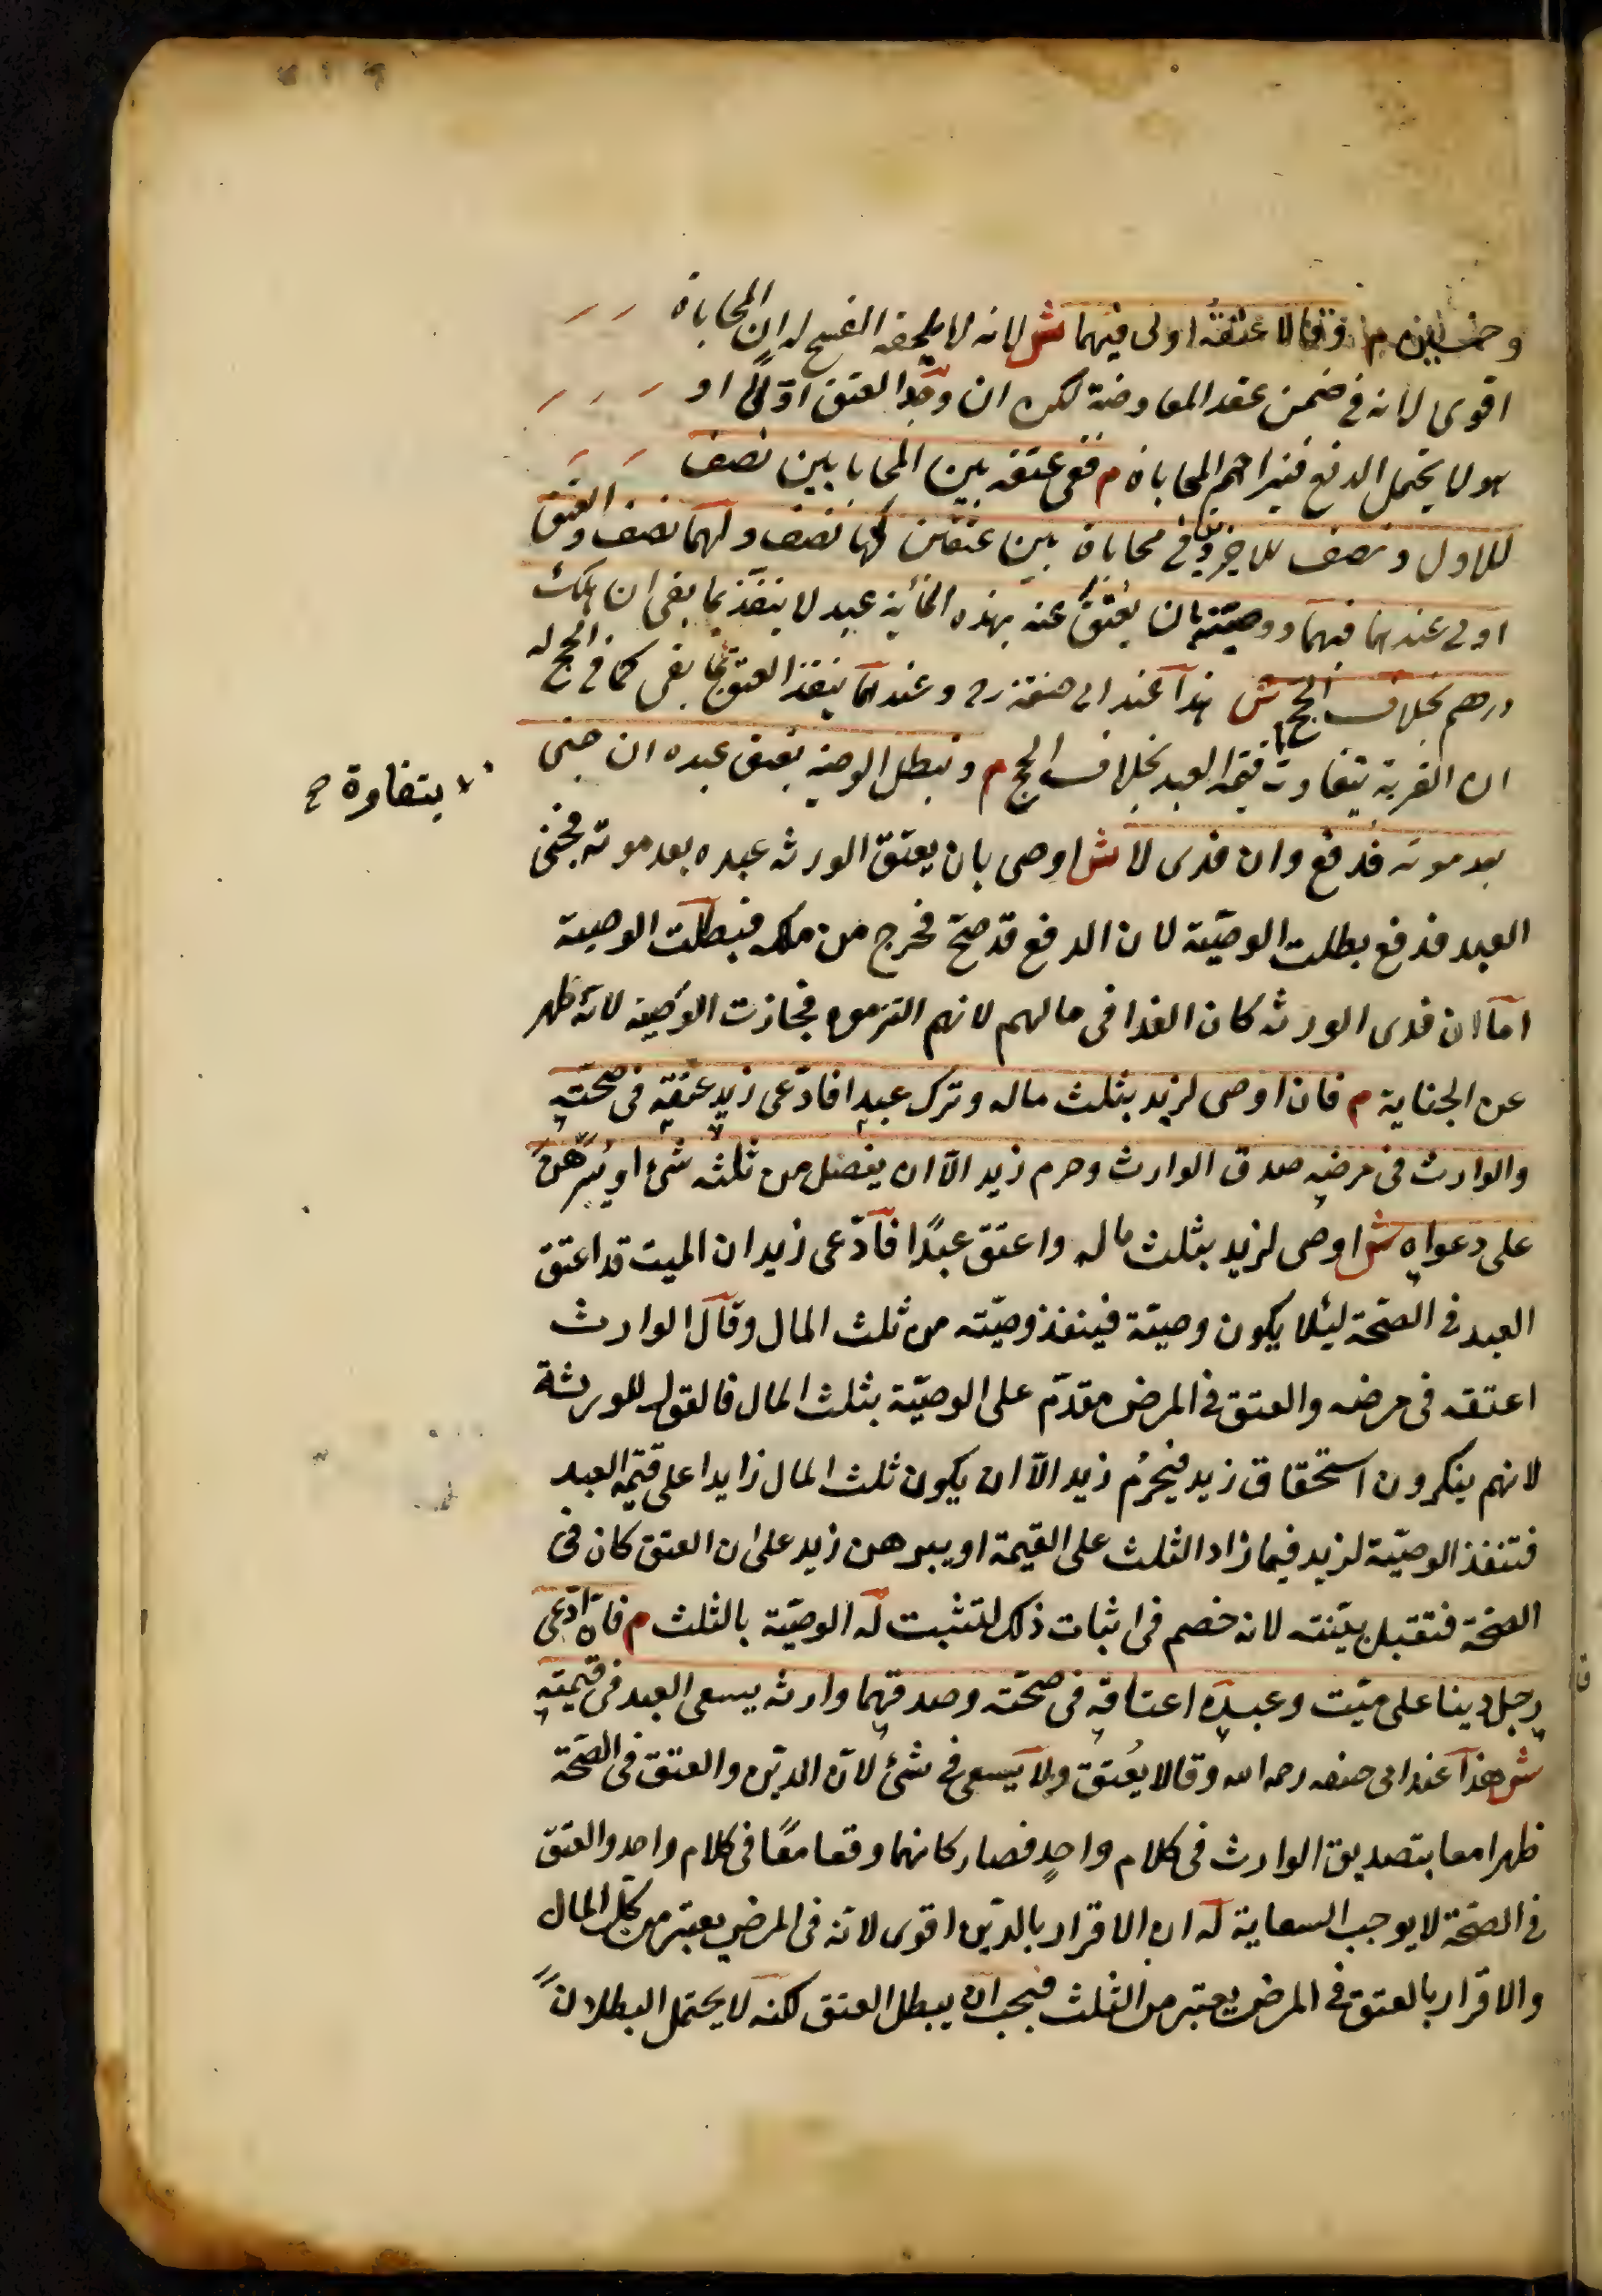 وخمسين م وقالا عتقه اولى فيهما ش لانه لا يلحقه الفسخ له ان المحاباة
اقوى لانه في ضمن عقد المعاوضة لكن ان وجد العتق اولا او
هو لا يحتمل الدفع فيزاحم المحاباة م ففي عتقه بين المحابا بين نصف
للاول ونصف للاخرين وفي محاباة بين عتقين لها نصف ولهما نصف والعتق
اولى عندهما فيهما ووصيته بان يعتق عنه بهذه المائة عبد لا ينفذ بما بقى ان هلك
درهم بخلاف الحج ش هذا عند ابى حنيفة رح وعندهما ينفذ العتق بما بقى كما في الحج له
ان القربة يتفاوت بقيمة العبد بخلاف الحج م وتبطل الوصية بعتق عبده ان جنى
بعد موته فدفع وان فدى لا ش اوصى بان يعتق الورثه عبده بعد موته فجنى
العبد فدفع بطلت الوصيّة لان الدفع قد صحّ فخرج من ملكه فبطلت الوصية
امّا ان فدى الورثه كان الفدا فى مالهم لانهم التزموه فجازت الوصية لانّه طهر
عن الجناية م فان اوصى لزيد بثلث ماله وترك عبدا فادّعى زيد عتقه فى صحّته
والوارث فى مرضه صدق الوارث وحرم زيد الّا ان يفضل من ثلثه شئ او يبرهن
على دعواه ش اوصى لزيد بثلث ماله واعتق عبدًا فادّعى زيد ان الميت قد اعتق
العبد فى الصّحة ليئلا يكون وصية فينفذ وصيّته من ثلث المال وقال الوارث
اعتقه فى مرضه والعتق فى المرض مقدّم على الوصيّة بثلث المال فالقول للورثة
لانهم ينكرون استحقاق زيد فيحرُم زيد الّا ان يكون ثلث المال زايدا على قيمة العبد
فتنفذ الوصيّة لزيد فيما زاد الثلث على القيمة او يبرهن زيد على ان العتق كان فى
الصحة فتقبل بيّنته لانه خصم فى اثبات ذلك لتثبت له الوصيّة بالثلث م فان ادّعى
رجل دينا على ميّت وعبده اعتاقه فى صحّته وصدقهما وارثه يسعى العبد فى قيمته
ش هذا عند ابى حنيفه رحمه الله وقالا يُعتق ولا يسعى فى شئ لانّ الدين والعتق فى الصّحّة
ظهرا معا بتصديق الوارث فى كلام واحدٍ فصار كانهما وقعا معًا فى كلام واحد والعتق
فى الصحّة لا يوجب السعاية له ان الاقرار بالدّين اقوى لانّه فى المرض يعتبر من كلّ المال
والاقرار بالعتق فى المرض يعتبر من الثلث فيجب ان يبطل العتق لكنه لا يحتمل البطلان
يتفاوة ح